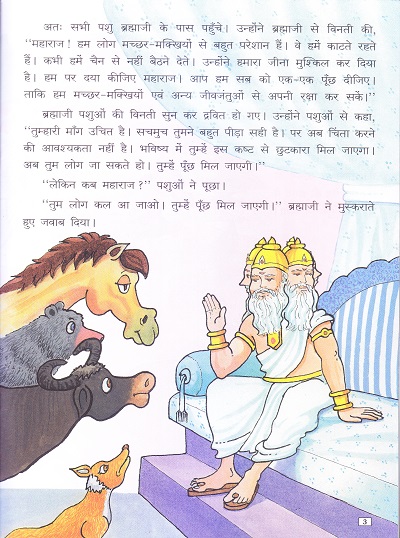 अतः सभी पशु ब्रह्माजी के पास पहुँचे। उन्होंने ब्रह्माजी से विनती की,
“महाराज! हम लोग मच्छर-मक्खियों से बहुत परेशान हैं। वे हमें काटते रहते
हैं। कभी हमें चैन से नहीं बैठने देते। उन्होंने हमारा जीना मुश्किल कर दिया
है। हम पर दया कीजिए महाराज। आप हम सब को एक-एक पूँछ दीजिए,
ताकि हम मच्छर-मक्खियों एवं अन्य जीवजंतुओं से अपनी रक्षा कर सकें।”
ब्रह्माजी पशुओं की विनती सुन कर द्रवित हो गए। उन्होंने पशुओं से कहा,
“तुम्हारी माँग उचित है। सचमुच तुमने बहुत पीड़ा सही है। पर अब चिंता करने
की आवश्यकता नहीं है। भविष्य में तुम्हें इस कष्ट से छुटकारा मिल जाएगा।
अब तुम लोग जा सकते हो। तुम्हें पूँछ मिल जाएगी।”
“लेकिन कब महाराज?” पशुओं ने पूछा।
“तुम लोग कल आ जाओ। तुम्हें पूँछ मिल जाएगी।” ब्रह्माजी ने मुस्कराते
हुए जवाब दिया।
3